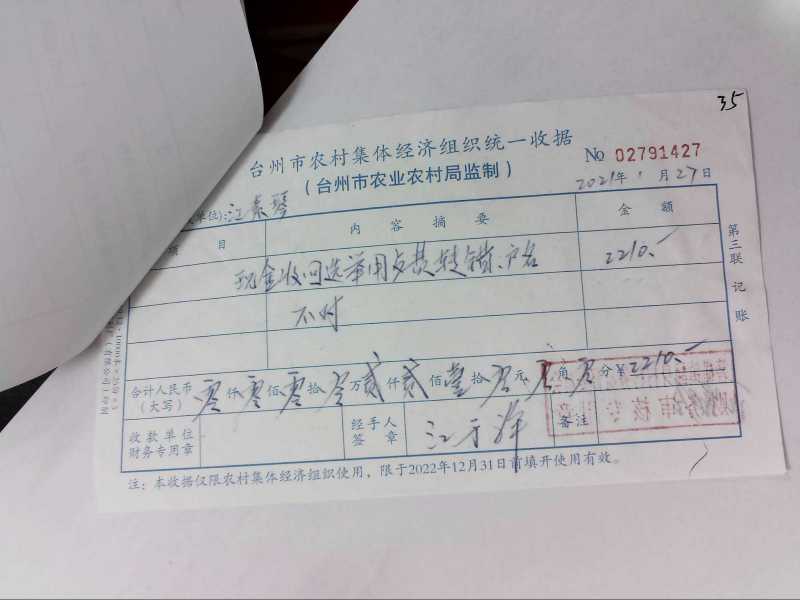 35
台州市农村集体经济组织统一收据
(台州市农业农村局监制)
No 02791427
2021年1月27日
单位):江素琴
项目 内容摘要 金额
现金收回选举用点封转错、户名 2210.-
不对
合计人民币(大写) 零仟零佰零拾零万贰仟贰佰壹拾零元零角零分¥2210.-
收款单位财务专用章 经手人签章 江 备注
审核专
第三联 记账
注:本收据仅限农村集体经济组织使用,限于2022年12月31日前填开使用有效。